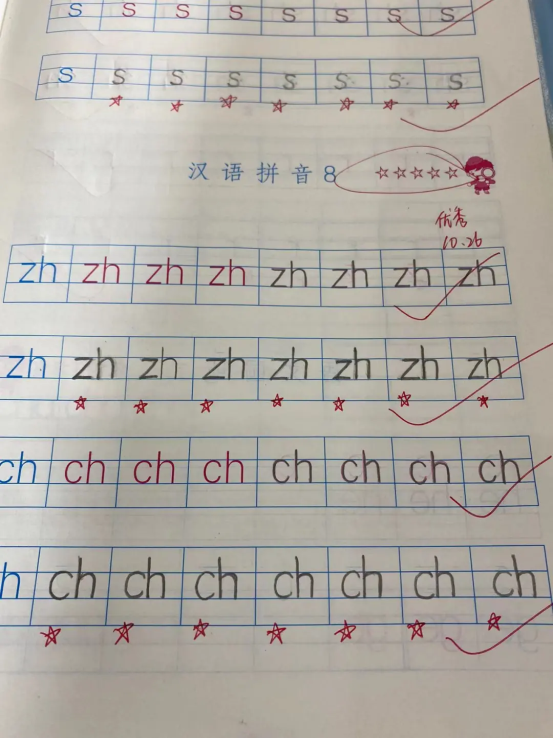 s s s s s s s
s s s s s s s s
汉语拼音8
优秀
10.26
zh zh zh zh zh zh zh zh
zh zh zh zh zh zh zh zh
ch ch ch ch ch ch ch ch
h ch ch ch ch ch ch ch